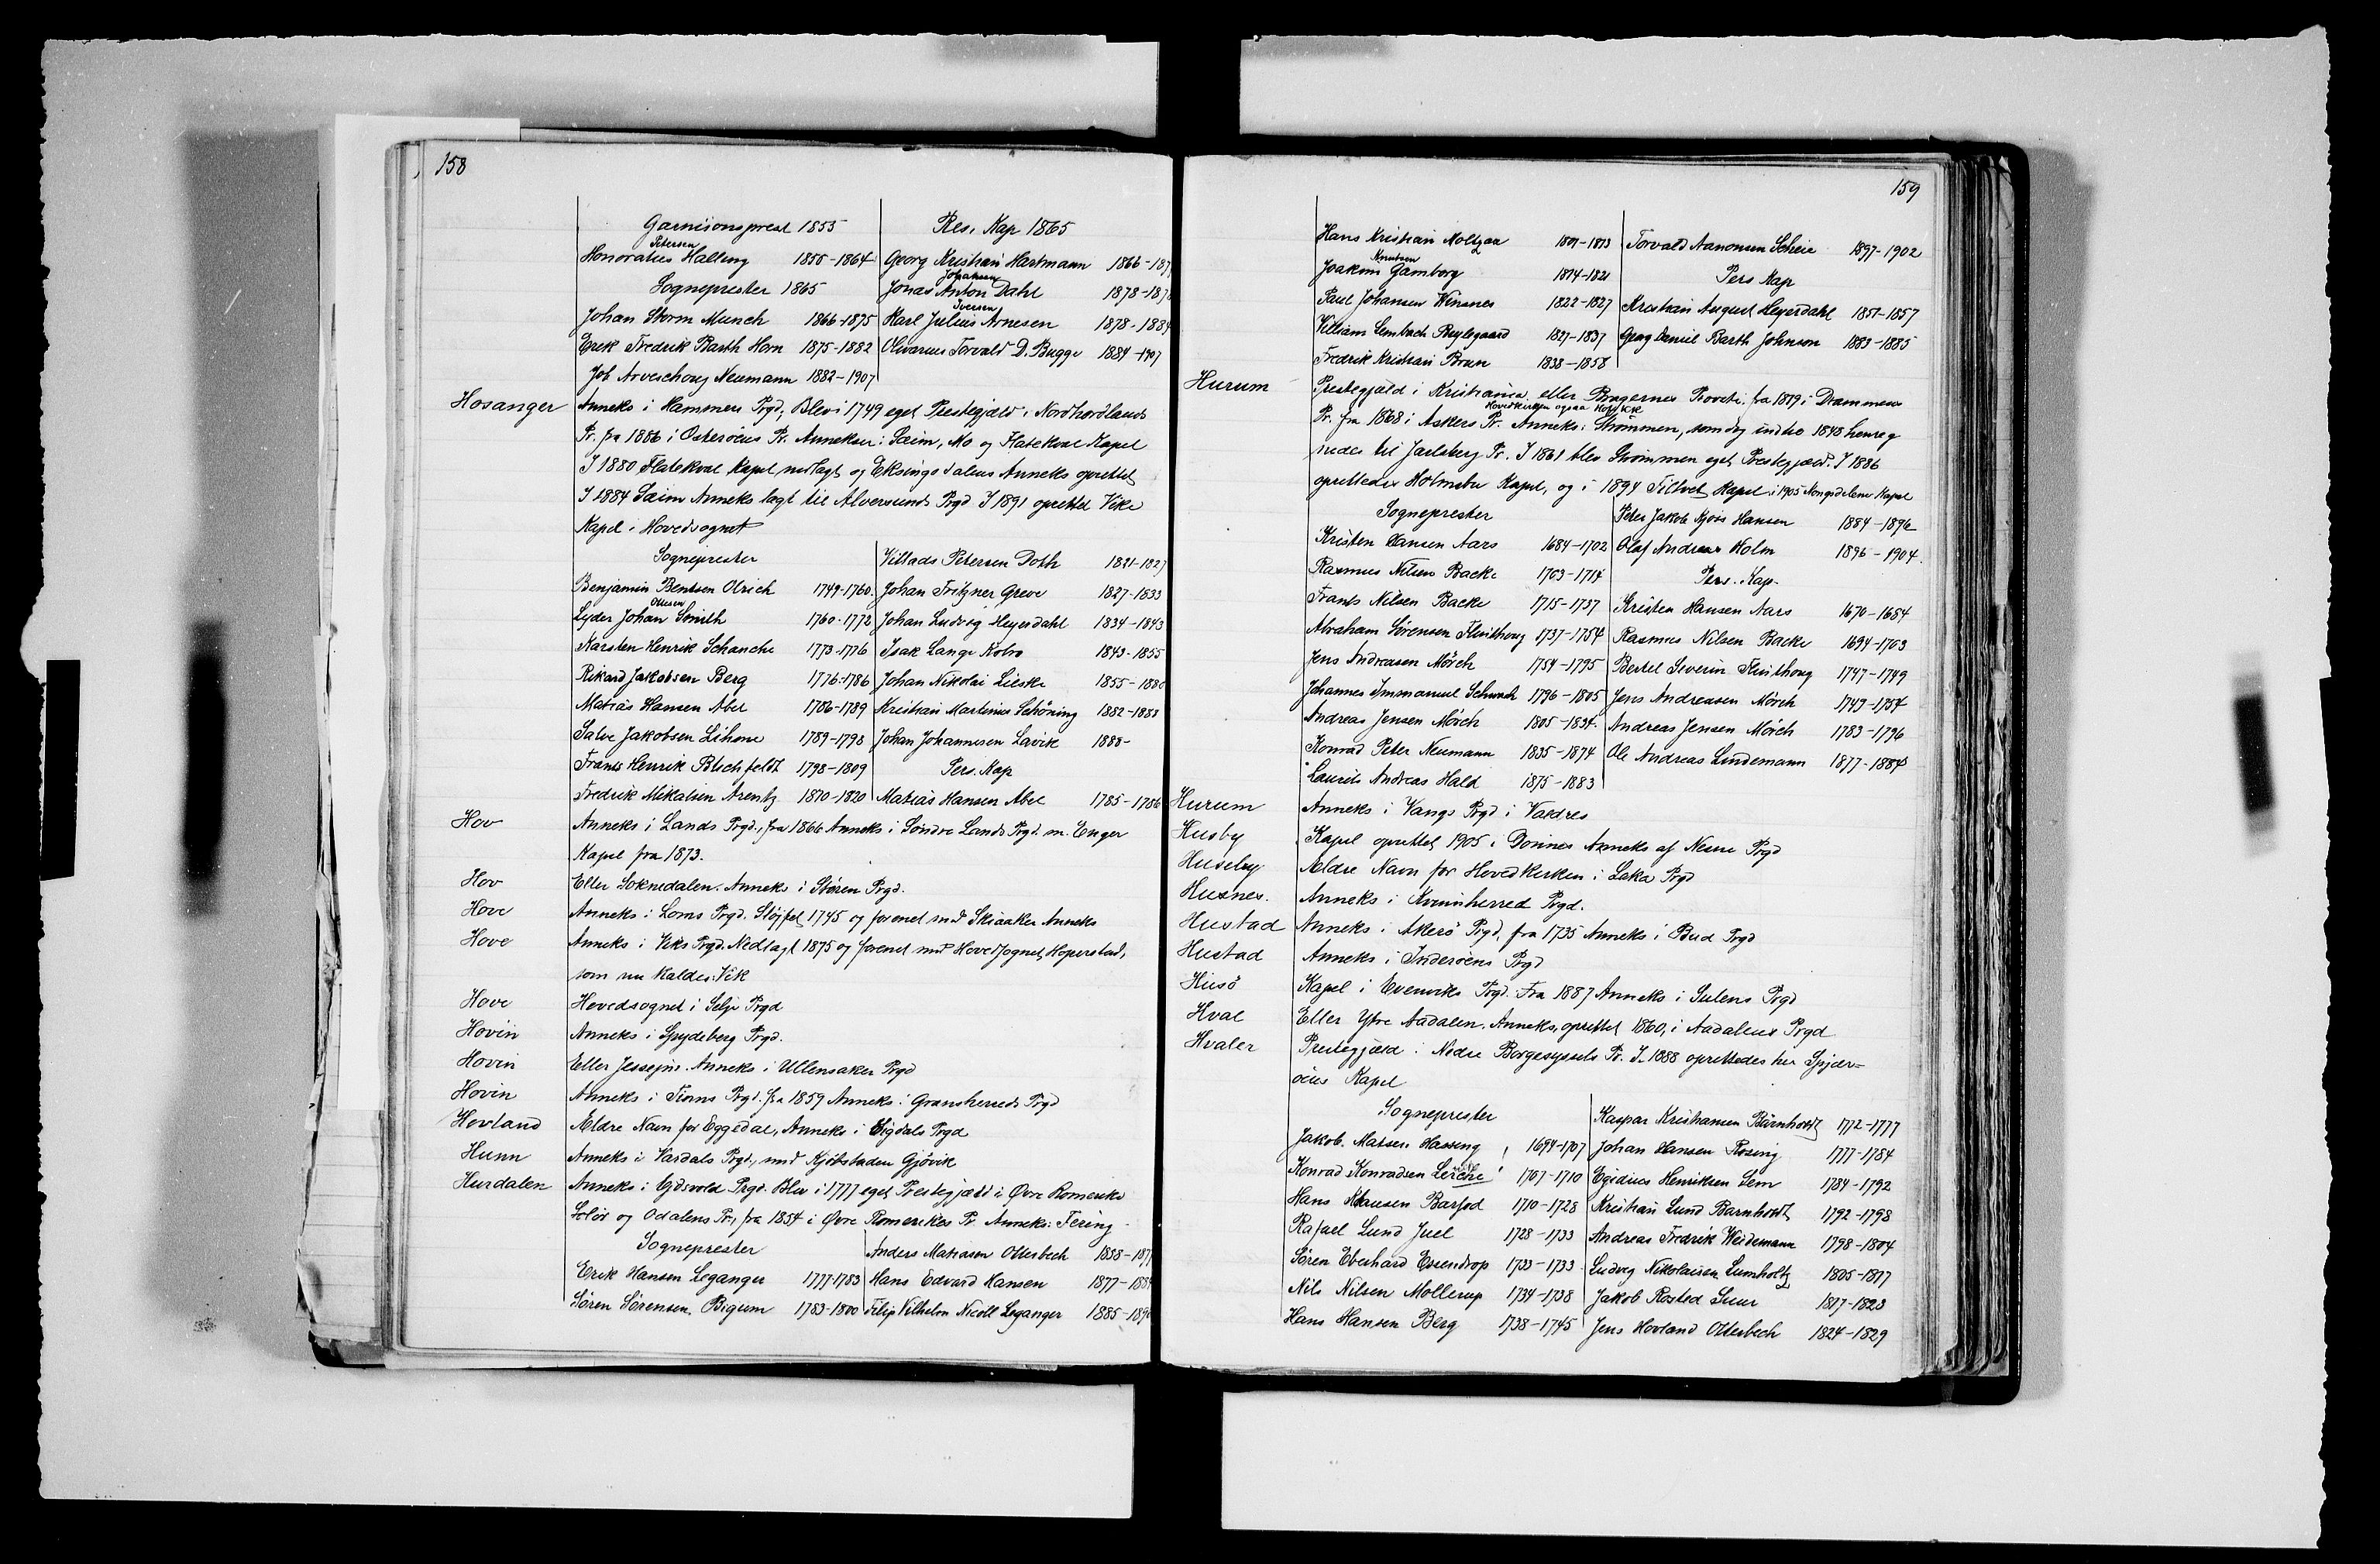 158
Garnisonsprest 1855
Petersen
Honoratius Halling 1855-1864
Sogneprester 1865
Johan Storm Munch 1866-1875
Erik Fredrik Barth Horn 1875-1882
Job Arveschoug Neumann 1882-1907
Res. Kap 1865
Georg Kristian Hartmann 1866-187
Johansen
Jonas Anton Dahl 1878-187
Iversen
Karl Julius Arnesen 1878-1884
Olivarius Torvald D. Bugge 1884-1907
Hosanger Anneks i Hammers Prgd, Blev i 1749 eget Prestegjæld i Nordhordlands
Pr. fra 1886 i Osterøens Pr. Annekser: Sæim, Mo og Flatekval Kapel
I 1880 Flatekval Kapel nedlagt og Eksingedalens Anneks oprettet
I 1884 Sæim Anneks lagt til Alversunds Prgd I 1891 oprettet Vike
Kapel i Hovedsognet
Sogneprester
Benjamin Bentsen Olrich 1749-1760
Ottesen
Lyder Johan Smith 1760-1772
Karsten Henrik Schanche 1773-1776
Rikard Jakobsen Berg 1776-1786
Matias Hansen Abel 1786-1789
Salve Jakobsen Lihme 1789-1798
Frants Henrik Blichfeldt 1798-1809
Fredrik Mikalsen Arentz 1810-1820
Villads Petersen Doth 1821-1827
Johan Fritzner Greve 1827-1833
Johan Ludvig Heyerdahl 1834-1843
Isak Lange Kobro 1843-1855
Johan Nikolai Lieske 1855-1880
Kristian Martinius Schöning 1882-1888
Johan Johannesen Lavik 1888-
Pers. Kap
Matias Hansen Abel 1785-1786
Hov Anneks i Lands Prgd, fra 1866 Anneks i Søndre Lands Prgd. m. Enger
Kapel fra 1873.
Hov Eller Soknedalen. Anneks i Støren Prgd.
Hove Anneks i Loms Prgd. Sløjfet 1745 og forenet med Skiaaker Anneks
Hove Anneks i Viks Prgd. Nedlagt 1875 og forenet med Hovedsognet, Hoperstad,
som nu kaldes Vik
Hove Hovedsognet i Selje Prgd
Hovin Anneks i Spydeberg Prgd.
Hovin Eller Jessejm. Anneks i Ullensaker Prgd
Hovin Anneks i Tinns Prgd. fra 1859 Anneks i Gransherreds Prgd
Hovland Ældre Navn for Eggedal, Anneks i Sigdals Prgd
Hunn Anneks i Vardals Prgd., med Kjøbstaden Gjøvik
Hurdalen Anneks i Ejdsvold Prgd. Blev i 1777 eget Prestegjæld i Øvre Romerike
Solør og Odalens Pr., fra 1854 i Øvre Romerikes Pr. Anneks: Fering
Sogneprester
Erik Hansen Leganger 1777-1783
Sören Sörensen Bigum 1783-1800
Anders Matiasen Otterbech 1858-187
Hans Edvard Hansen 1877-188
Filip Vilhelm Nicoll Leganger 1885-189
159
Hans Kristian Moltzau 1801-1813
Knudsen
Joakim Gamborg 1814-1821
Paul Johansen Winsnes 1822-1827
Villiam Lembach Reylegaard 1827-1837
Fredrik Kristian Brun 1838-1858
Torvald Aanonsen Scheie 1897-1902
Pers Kap
Kristian August Heyerdahl 1851-1857
Georg Daniel Barth Johnson 1883-1885
Hurum Prestegjæld i Kristiania eller Bragernes Provsti, fra 1819 i Drammens
Hovedkirken ogsaa Holf KK
Pr. fra 1868 i Askers Pr. Anneks: Strømmen, som dog indtil 1848 henreg
nedes til Jarlsberg Pr. I 1861 blev Strømmen eget Prestegjæld. I 1886
oprettedes Holmsbu Kapel, og i 1894 Filtvet Kapel i 1905 Kongsdelene Kapel
Sogneprester
Kristen Hansen Aars 1684-1702
Rasmus Nilsen Backe 1703-1714
Frants Nilsen Backe 1715-1737
Abraham Sörensen Flinthoug 1737-1754
Jens Andreasen Mörch 1754-1795
Johannes Immanuel Schwach 1796-1805
Andreas Jensen Mörch 1805-1834
Konrad Peter Neumann 1835-1874
Laurits Andreas Hald 1875-1883
Peter Jakob Njøs Hansen 1884-1896
Olaf Andreas Holm 1896-1904
Pers. Kap.
Kristen Hansen Aars 1670-1684
Rasmus Nilsen Backe 1694-1703
Bertel Severin Flinthoug 1747-1749
Jens Andreasen Mörch 1749-1754
Andreas Jensen Mörch 1783-1796
Ole Andreas Lindemann 1877-1884
Hurum Anneks i Vangs Prgd i Valdres
Husby Kapel oprettet 1905 i Dönnes Anneks af Nesne Prgd
Huseby Ældre Navn for Hovedkirken i Leka Prgd
Husnes. Anneks i Kvinnherred Prgd.
Hustad Anneks i Akerö Prgd, fra 1735 Anneks i Bud Prgd
Hustad Anneks i Inderøens Prgd
Husö Kapel i Evenviks Prgd. Fra 1887 Anneks i Sulens Prgd
Hval Eller Ytre Aadalen. Anneks, oprettet 1860, i Aadalens Prgd
Hvaler Prestegjæld i Nedre Borgesyssels Pr. I 1888 oprettedes her Spjær-
öens Kapel
Sogneprester
Jakob Matsen Hassing 1694-1707
Konrad Konradsen Lerche 1707-1710
Hans Klausen Barfod 1710-1728
Rafael Lund Juel 1728-1733
Sören Eberhard Essendrop 1733-1733
Nils Nilsen Mollerup 1734-1738
Hans Hansen Berg 1738-1745
Kaspar Kristiansen Barnholdt 1772-1777
Johan Hansen Rosing 1777-1784
Egidius Henriksen Lem 1784-1792
Kristian Lund Barnholdt 1792-1798
Andreas Fredrik Weidemann 1798-1804
Ludvig Nikolaisen Lumholtz 1805-1817
Jakob Rosted Suur 1817-1823
Jens Hovland Otterbech 1824-1829